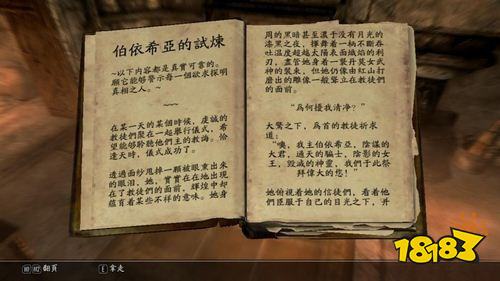 伯依希亞的試煉
~以下內容都是真實可靠的。
願它能警示每一個欲求探明
真相之人。~
~~~
在某一天的某個時候,虔誠的
教徒們聚在一起舉行儀式,希
望能夠聆聽他們主的教誨。恰
逢天時,儀式成功了。
透過面紗甩掉一顆被眼熏出來
的眼淚,她,實實在在地出現
在了教徒們的面前,輝煌中卻
蘊育着某些不祥的意味。她身
周的黑暗甚至濃于沒有月光的
漆黑之夜,揮舞着一柄不斷吞
吐溫度超越太陽表面熾焰的利
刃,盡管她身着一襲丹莫女武
神的裝束,但她仍像由紅山打
磨出的雕像一般聳立在教徒們
的面前。
“爲何擾我清净?”
大驚之下,爲首的教徒祈求
道:
“噢,我主伯依希亞,陰謀的
大君,通天的騙士,陰影的女
王,毀滅的神靈,我們于此祭
拜偉大的您!”
她俯視着她的信徒們,看着他
們臣服于自己的目光之下,并
翻頁
E 拿走
18183